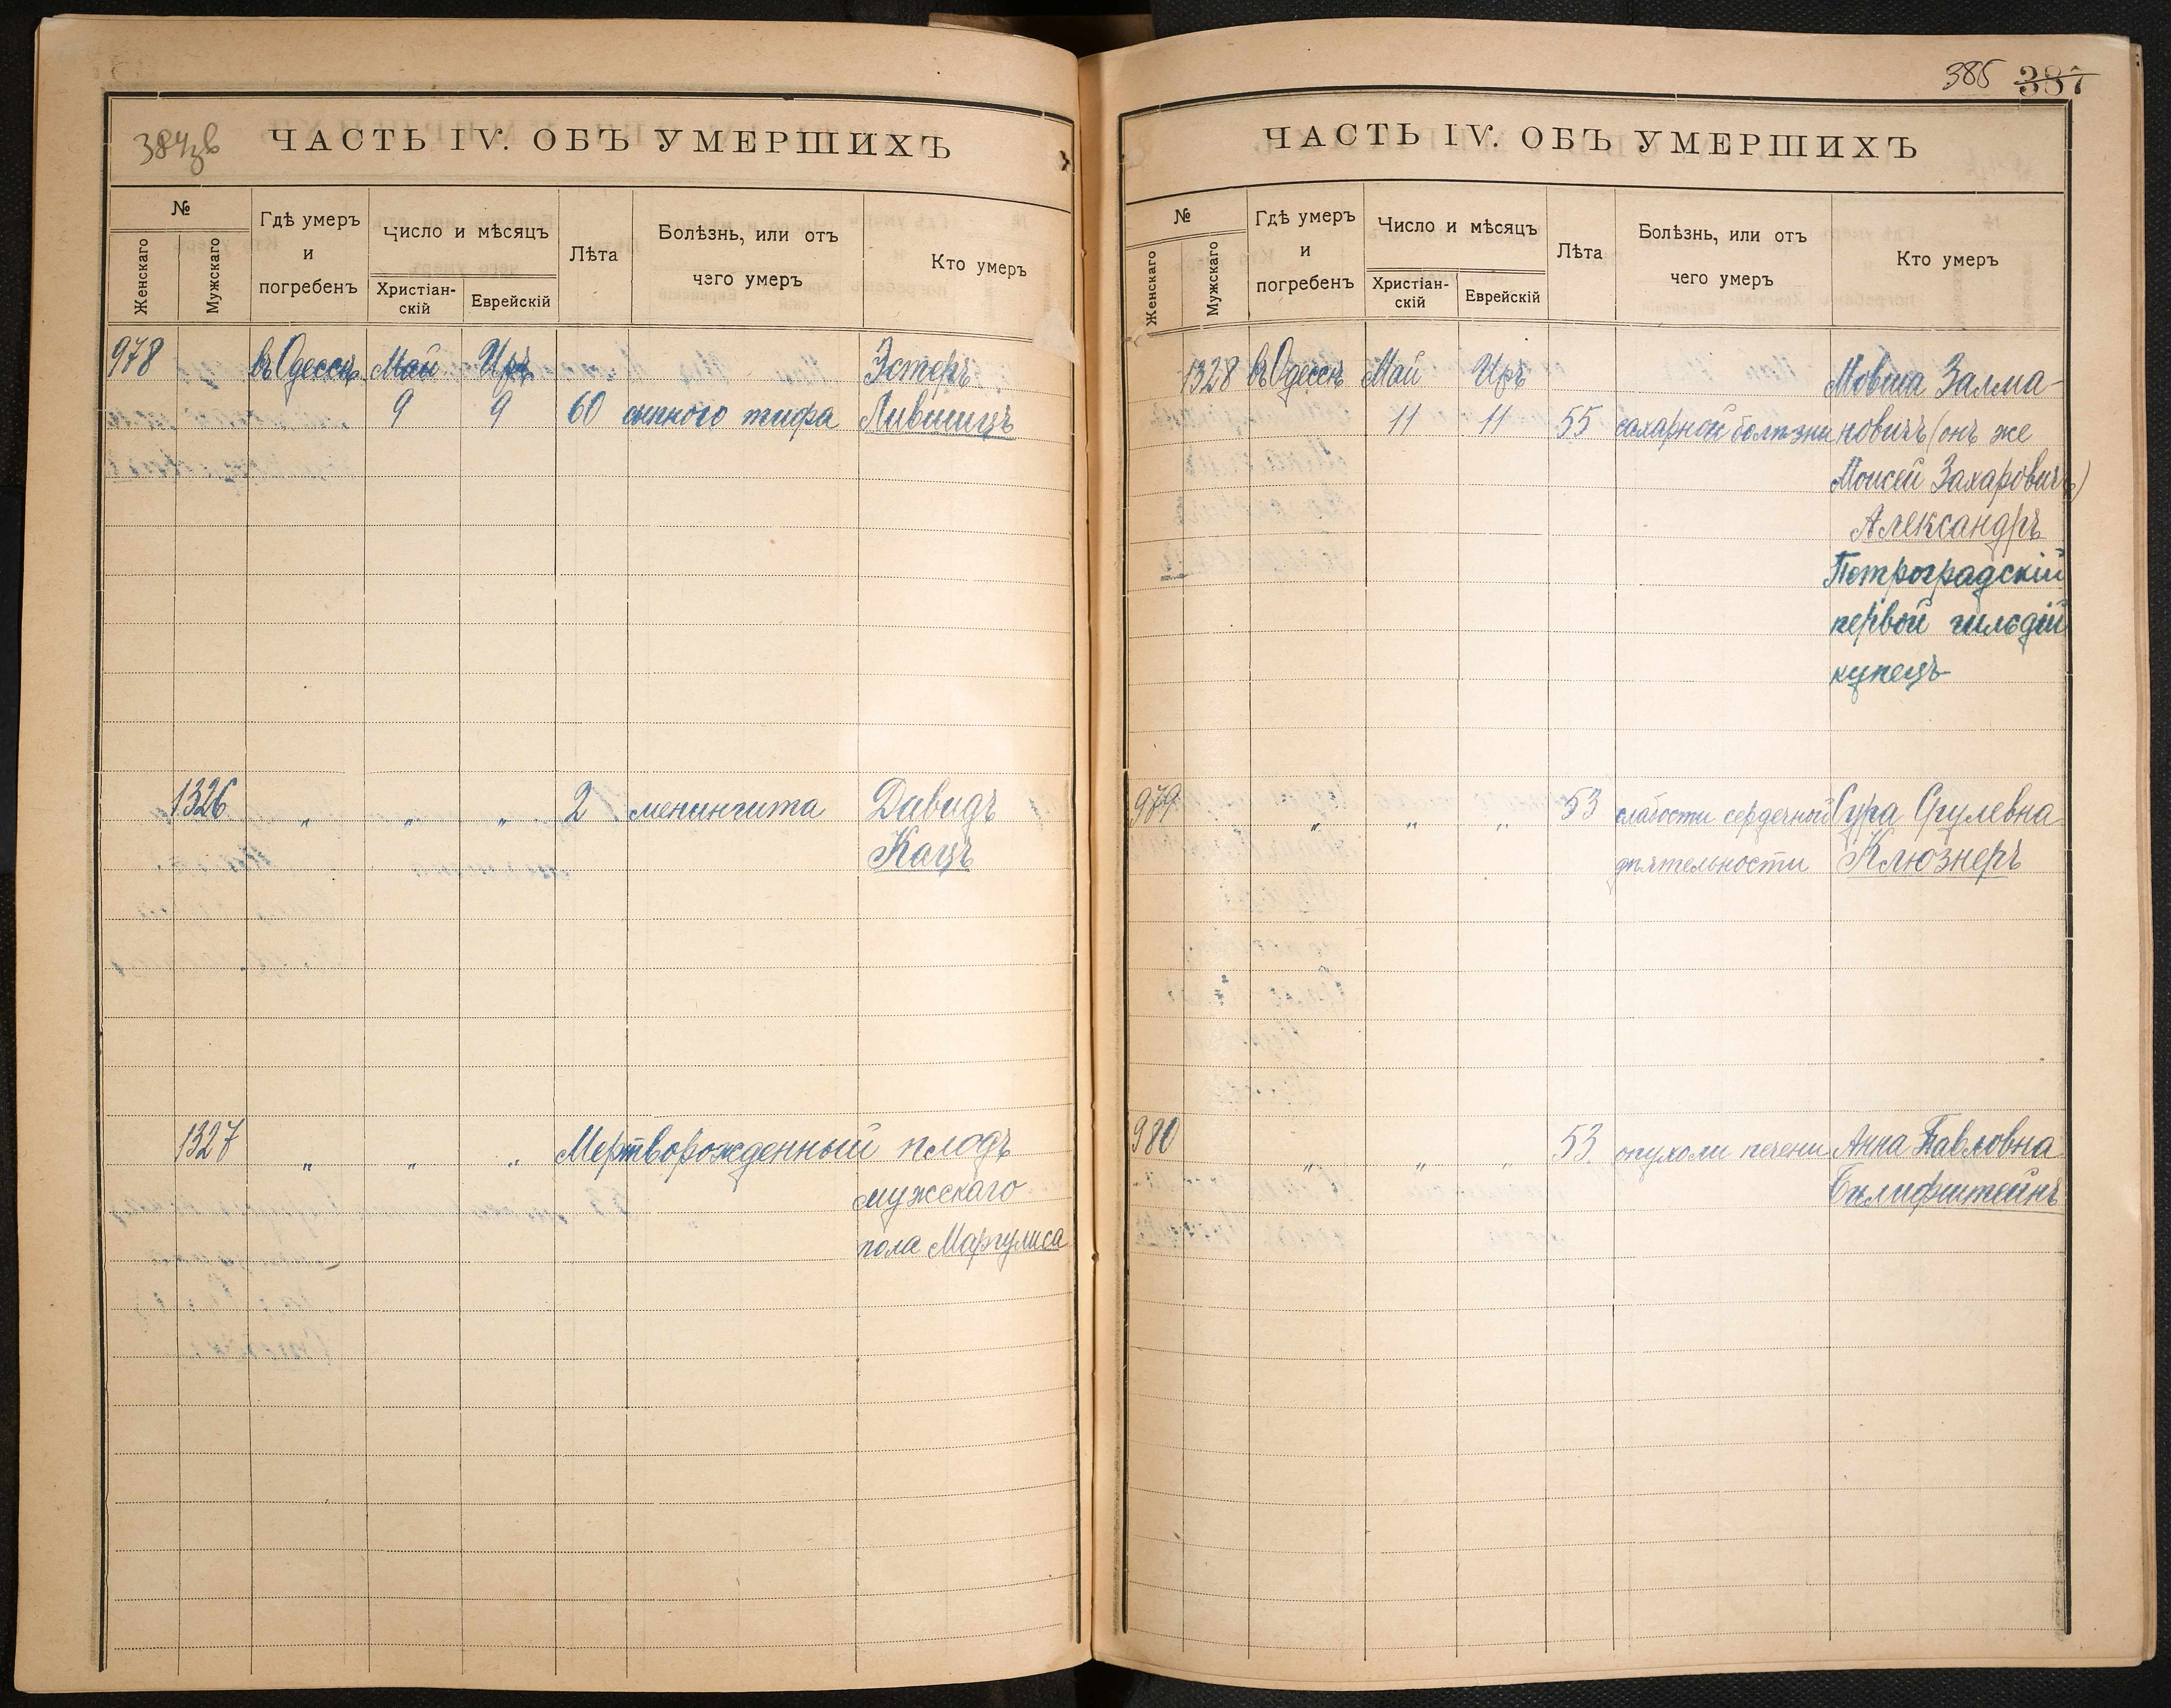 384зв
ЧАСТЬ IV. ОБЪ УМЕРШИХЪ
№
Женскаго
Мужскаго
Гдѣ умеръ
и
погребенъ
Число и мѣсяцъ
Христіан-
скій
Еврейскій
Лѣта
Болѣзнь, или отъ
чего умеръ
Кто умеръ
978 въ Одессѣ Май Иръ Эстеръ
9 9 60 сыпного тифа Лившицъ
1326 " " " 2 менингита Давидъ
Кацъ
1327 " " " Мертворожденный плодъ
мужскаго
пола Маргулиса
385 387
ЧАСТЬ IV. ОБЪ УМЕРШИХЪ
№
Женскаго
Мужскаго
Гдѣ умеръ
и
погребенъ
Число и мѣсяцъ
Христіан-
скій
Еврейскій
Лѣта
Болѣзнь, или отъ
чего умеръ
Кто умеръ
1328 въ Одессѣ Май Иръ Мовша Залма-
11 11 55 сахарной болѣзни новичъ (онъ же
Моисей Захаровичъ)
Александръ
Петроградскій
первой гильдіи
купецъ
979 " " " 53 слабости сердечной Сура Срулевна
дѣятельности Клюзнеръ
980 " " " 53 опухоли печени Анна Павловна